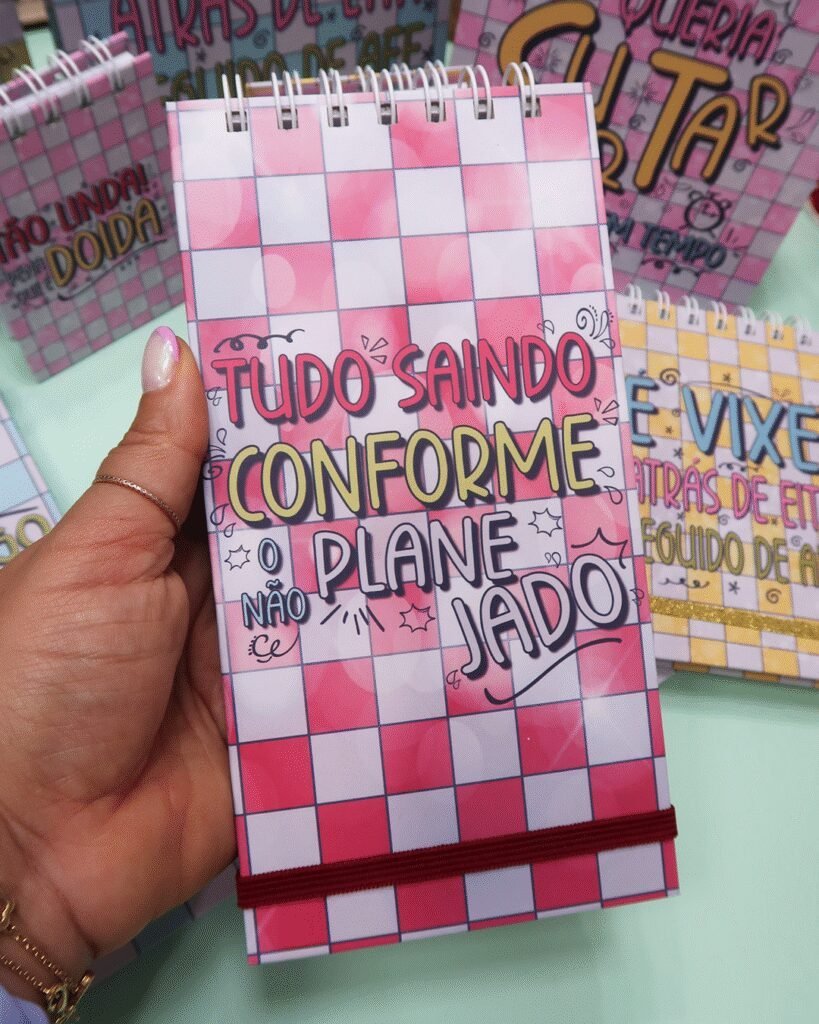 TUDO SAINDO
CONFORME
O NÃO PLANE
JADO
ATRÁS DE
SEGUIDO DE AFE
QUERIA
TAR
EM TEMPO
TÃO LINDA!
DOIDA
É VIXE
ATRÁS DE EIT
SEGUIDO DE A